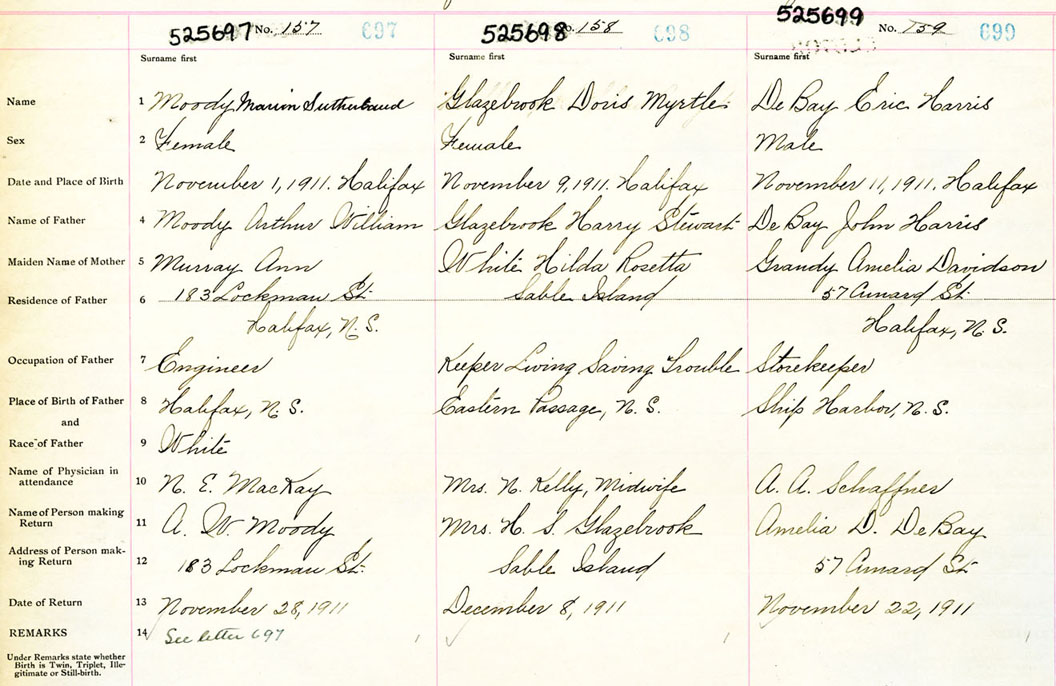 525697 No. 157 697 525698 No. 158 698 525699 No. 159 699
Surname first Surname first Surname first
Name 1 Moody Marion Sutherland Glazebrook Doris Myrtle De Bay Eric Harris
Sex 2 Female Female Male
Date and Place of Birth November 1, 1911. Halifax November 9, 1911. Halifax November 11, 1911. Halifax
Name of Father 4 Moody Arthur William Glazebrook Harry Stewart De Bay John Harris
Maiden Name of Mother 5 Murray Ann White Hilda Rosetta Grandy Amelia Davidson
Residence of Father 6 183 Lockman St. Sable Island 57 Cunard St.
Halifax, N.S. Halifax, N.S.
Occupation of Father 7 Engineer Keeper Living Saving Trouble Storekeeper
Place of Birth of Father 8 Halifax, N.S. Eastern Passage, N.S. Ship Harbor, N.S.
and
Race of Father 9 White
Name of Physician in
attendance 10 N. E. MacKay Mrs. N. Kelly, Midwife A. A. Schaffner
Name of Person making
Return 11 A. W. Moody Mrs. H. S. Glazebrook Amelia D. DeBay
Address of Person mak-
ing Return 12 183 Lockman St. Sable Island 57 Cunard St.
Date of Return 13 November 28, 1911 December 8, 1911 November 22, 1911
REMARKS 14 See letter 697
Under Remarks state whether
Birth is Twin, Triplet, Ille-
gitimate or Still-birth.